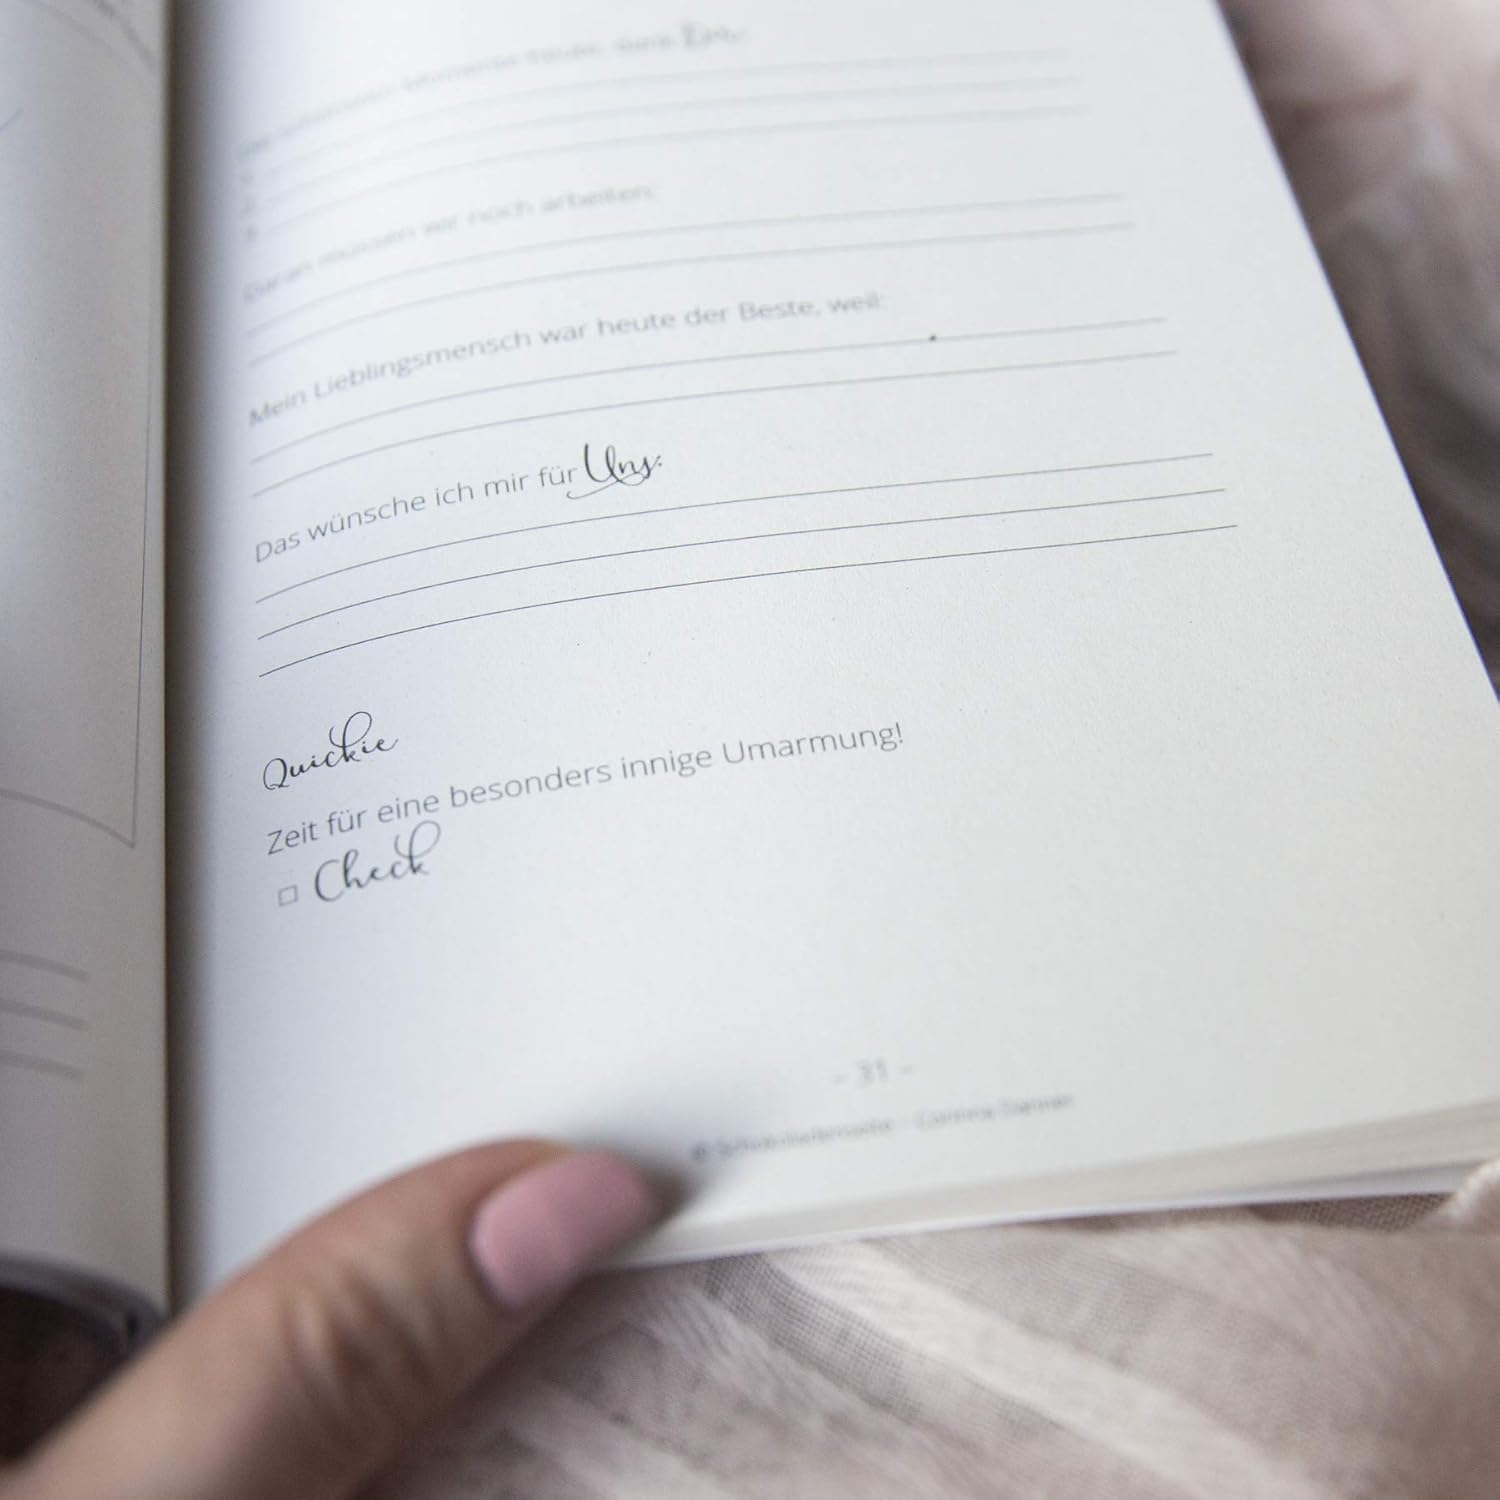 Momente heute, dank
1.
2.
3.
Daran müssen wir noch arbeiten:
Mein Lieblingsmensch war heute der Beste, weil:
Das wünsche ich mir für Uns:
Quickie
Zeit für eine besonders innige Umarmung!
□ Check
- 31 -
©